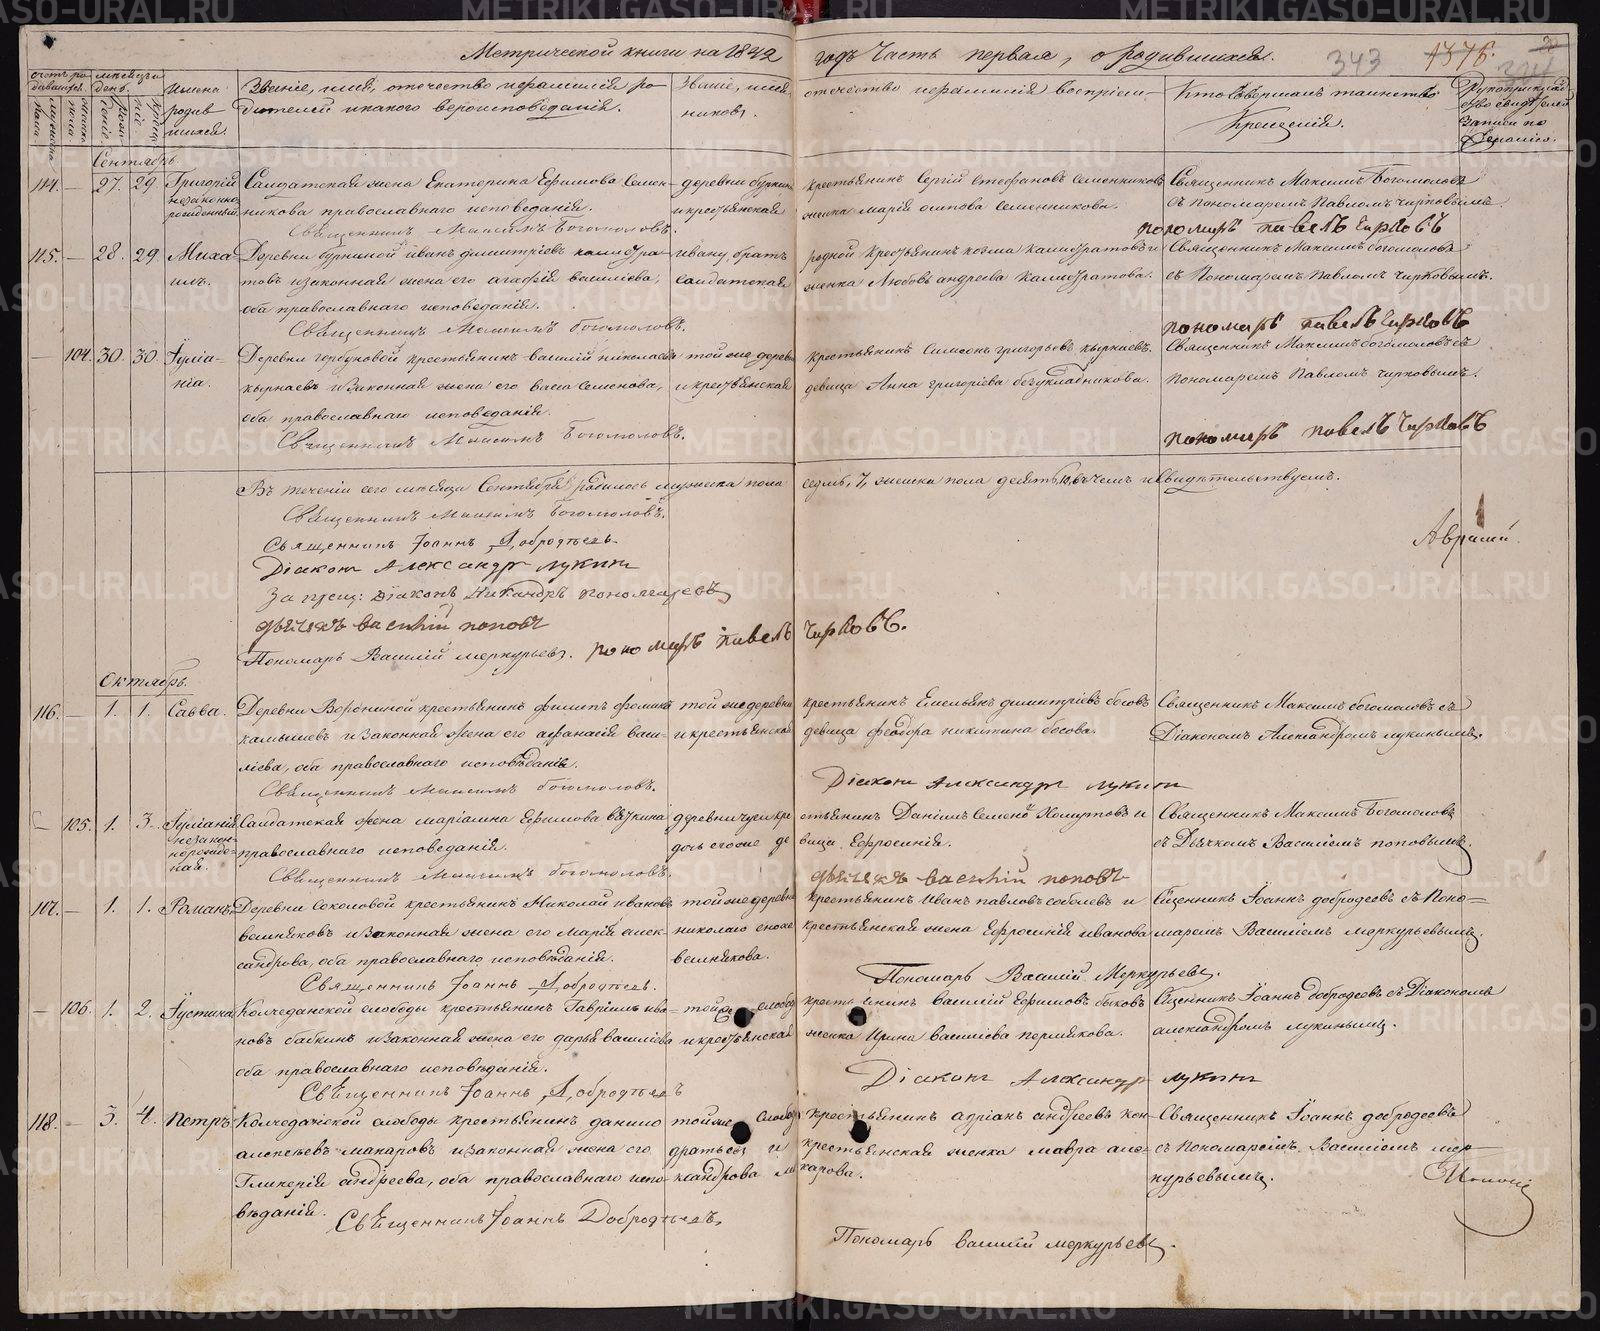 Метрической книги на 1842 годъ Часть первая, о родившихся.
343 1376.
Счетъ родившихся
Мѣсяцъ и день
Имена родившихся.
Званіе, имя, отечество и фамилія родителей и какого вероисповѣданія.
Званіе, имя, отечество и фамилія воспріемниковъ.
Кто совершалъ таинство Крещенія.
Рукоприкладство свидѣтелей записи по желанію.
Сентябрь.
114. — 27. 29 Григорій незаконнорожденный. Салдатская жена Екатерина Ефимова Семен- деревни крестьянинъ Сергій Стефановъ Семенниковъ Священникъ Максимъ Богомоловъ
никова православнаго исповеданія. и крестьянская женка Марія Осипова Семенникова. съ пономаремъ Павломъ Чирковымъ.
Священникъ Максимъ Богомоловъ. пономарь павелъ Чирковъ
115. — 28. 29 Михаилъ. Деревни Буриной Иванъ Димитріевъ Калистра- Ивану братъ родной крестьянинъ Козма Калистратовъ и Священникъ Максимъ Богомоловъ
товъ и законная жена его Агафія Василіева, салдатская женка Любовь Андреева Калистратова. съ Пономаремъ Павломъ Чирковымъ.
оба православнаго исповеданія.
Священникъ Максимъ Богомоловъ. пономарь павелъ Чирковъ
— 104. 30. 30 Іуліанія. Деревни Горбуновой крестьянинъ Василій Николаевъ той же деревни крестьянинъ Симеонъ Григорьевъ Кырнаевъ. Священникъ Максимъ Богомоловъ съ
Кырнаевъ и законная жена его Васса Семенова, и крестьянская девица Анна Григоріева Безукладникова. пономаремъ Павломъ Чирковымъ.
оба православнаго исповеданія.
Священникъ Максимъ Богомоловъ. пономарь павелъ Чирковъ
Въ теченіи сего мѣсяца Сентября родилось мужеска пола седмь, 7, женска пола десять, 10, въ чемъ и свидѣтельствуемъ.
Священникъ Максимъ Богомоловъ.
Священникъ Іоаннъ Добродѣевъ.
Діаконъ Александръ Лукинъ
Діаконъ Никандръ Пономаревъ
дьячекъ василій поповъ
Пономарь Василій Меркурьевъ. пономарь павелъ Чирковъ.
Октябрь.
116. — 1. 1. Савва. Деревни Ворониной крестьянинъ Филипъ Фомин той же деревни крестьянинъ Емельянъ Димитріевъ Босовъ Священникъ Максимъ Богомоловъ съ
Камышевъ и законная жена его Афанасія Васи- и крестьянской девица Феодора Никитина Босова. Діакономъ Александромъ Лукинымъ.
лиева, оба православнаго исповѣданія.
Священникъ Максимъ Богомоловъ. Діаконъ Александръ Лукинъ
— 105. 1. 3. Іуліанія незаконнорожденная. Салдатская жена Маріамна Ефимова Вяткина деревни кре стьянинъ Даніилъ Семеновъ Хомутовъ и Священникъ Максимъ Богомоловъ
православнаго исповеданія. дочь его же де вица Ефросинія. съ Дьячкомъ Василіемъ Поповымъ.
Священникъ Максимъ Богомоловъ. дьячекъ василій поповъ
117. — 1. 1. Романъ. Деревни Соколовой крестьянинъ Николай Ивановъ той же деревни крестьянинъ Иванъ Павловъ Соболевъ и Сщенникъ Іоаннъ Добродеевъ съ Поно-
Вешняковъ и законная жена его Марія Алек- Николаю крестьянская жена Ефросинія Иванова маремъ Василіемъ Меркурьевымъ.
сандрова, оба православнаго исповѣданія. Вешнякова.
Священникъ Іоаннъ Добродѣевъ. Пономарь Василій Меркурьевъ.
— 106. 1. 2. Іустина Колчеданской слободы крестьянинъ Гавріилъ Ива- той же слободы крестьянинъ Василій Ефимовъ Быковъ Сщенникъ Іоаннъ Добродеевъ съ Діакономъ
новъ Бабкинъ и законная жена его Дарья Василіева и крестьянская женка Ирина Василіева Пермякова. Александромъ Лукинымъ.
оба православнаго исповѣданія.
Священникъ Іоаннъ Добродѣевъ Діаконъ Александръ Лукинъ
118. — 3. 4. Петръ. Колчеданской слободы крестьянинъ Данило той же слободы крестьянинъ Адріанъ Андреевъ Кон- Священникъ Іоаннъ Добродеевъ
Алексеевъ Макаровъ и законная жена его дратьевъ и крестьянская женка Мавра Але- съ Пономаремъ Василіемъ Мер-
Гликерія Андреева, оба православнаго испо- ксандрова Макарова. курьевымъ.
вѣданія. Священникъ Іоаннъ Добродѣевъ.
Пономарь василій меркурьевъ.
METRIKI.GASO-URAL.RU